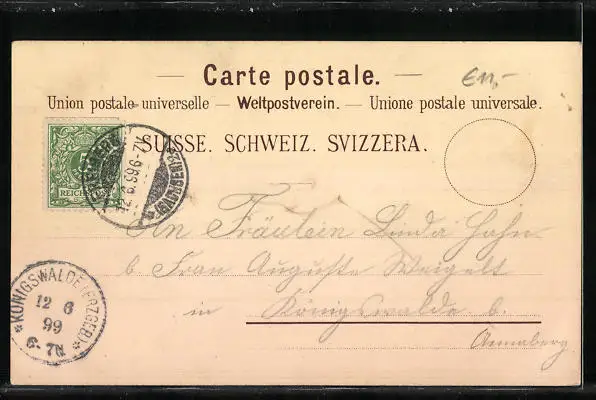 Carte postale.
€11,-
Union postale universelle – Weltpostverein. – Unione postale universale.
SUISSE. SCHWEIZ. SVIZZERA.
5
REICHSPOST
12.6.99.6-7N.
An Fräulein Linda Hahn
b. Frau Auguste Weigelt
in Königswalde b.
Annaberg
KÖNIGSWALDE (ERZGEB.)
12 6
99
6-7N